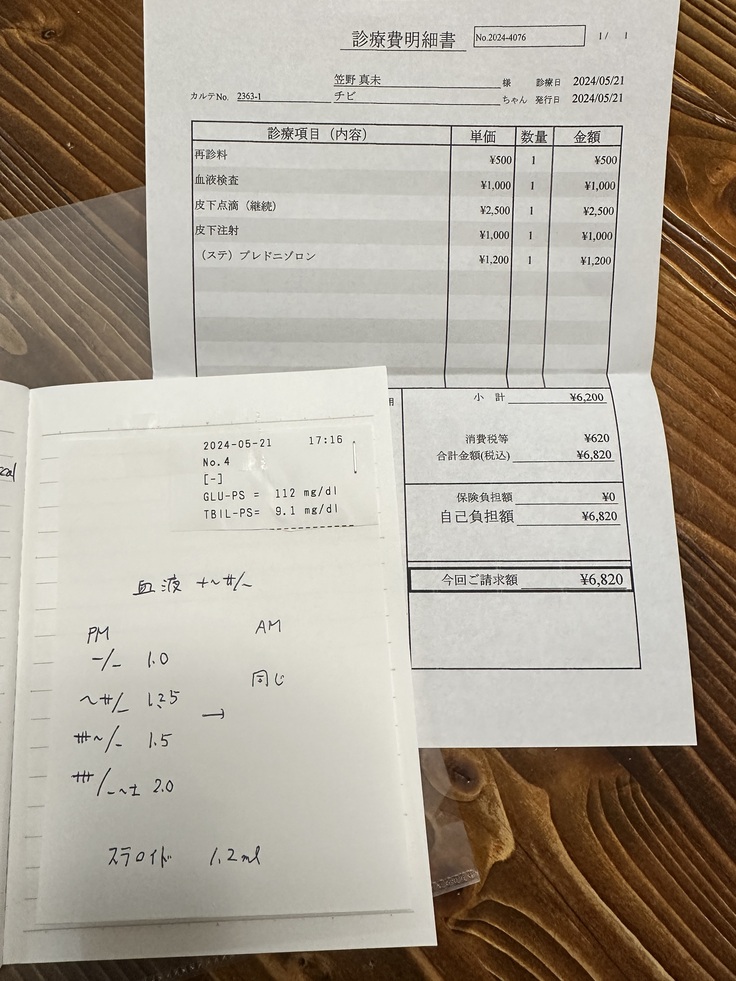 診療費明細書
No.2024-4076
1/ 1
笠野 真未 様 診療日 2024/05/21
カルテNo. 2363-1 チビ ちゃん 発行日 2024/05/21
診療項目（内容） 単価 数量 金額
再診料 ¥500 1 ¥500
血液検査 ¥1,000 1 ¥1,000
皮下点滴（継続） ¥2,500 1 ¥2,500
皮下注射 ¥1,000 1 ¥1,000
（ステ）プレドニゾロン ¥1,200 1 ¥1,200
小 計 ¥6,200
消費税等 ¥620
合計金額(税込) ¥6,820
保険負担額 ¥0
自己負担額 ¥6,820
今回ご請求額 ¥6,820
2024-05-21 17:16
No.4
[-]
GLU-PS = 112 mg/dl
TBIL-PS= 9.1 mg/dl
血液 +~++/-
PM AM
-/- 1.0
~++/- 1.25 → 同じ
+++~/- 1.5
+++/-~± 2.0
ステロイド 1.2ml